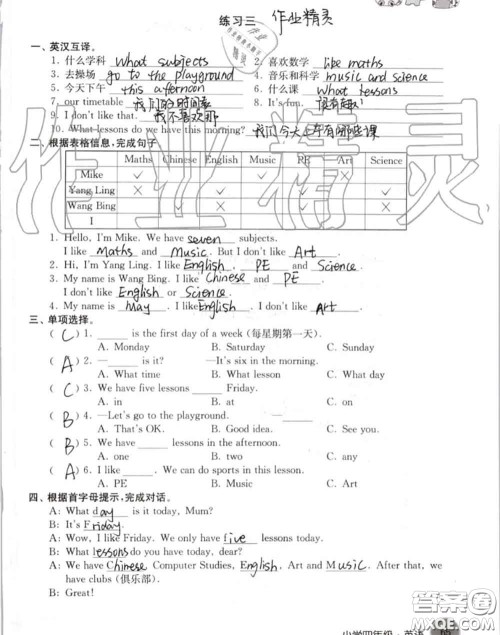 练习三 作业精灵
一、英汉互译。
1. 什么学科 What subjects 2. 喜欢数学 like maths
3. 去操场 go to the playground 4. 音乐和科学 music and science
5. 今天下午 this afternoon 6. 什么课 What lessons
7. our timetable 我们的时间表 8. It's fun. 很有趣!
9. I don't like that. 我不喜欢那
10. What lessons do we have this morning? 我们今天上午有哪些课
二、根据表格信息,完成句子
Maths Chinese English Music PE Art Science
Mike ✓ ✓ ✗
Yang Ling ✓ ✓ ✓
Wang Bing ✓ ✗ ✓ ✗
I
1. Hello, I'm Mike. We have seven subjects.
I like Maths and Music. But I don't like Art.
2. Hi, I'm Yang Ling. I like English, PE and Science.
3. My name is Wang Bing. I like Chinese and PE.
I don't like English or Science.
4. My name is May. I like English. I don't like Art.
三、单项选择。
( C ) 1. ____ is the first day of a week (每星期第一天).
A. Monday B. Saturday C. Sunday
( A ) 2. —____ is it? —It's six in the morning.
A. What time B. What lesson C. What day
( C ) 3. We have five lessons ____ Friday.
A. in B. at C. on
( B ) 4. —Let's go to the playground. —____
A. That's OK. B. Good idea. C. All right.
( B ) 5. We have ____ lessons in the afternoon.
A. one B. two C. any
( A ) 6. I like ____. We can do sports in this lesson.
A. PE B. Music C. Art
四、根据首字母提示,完成对话。
A: What day is it today, Mum?
B: It's Friday.
A: Wow, I like Friday. We only have five lessons today.
B: What lessons do you have today, dear?
A: We have Chinese, Computer Studies, English, Art and Music. After school, we
have clubs (俱乐部).
B: Great!
小学四年级·英语
作业精灵
答案圈
MXQE.COM